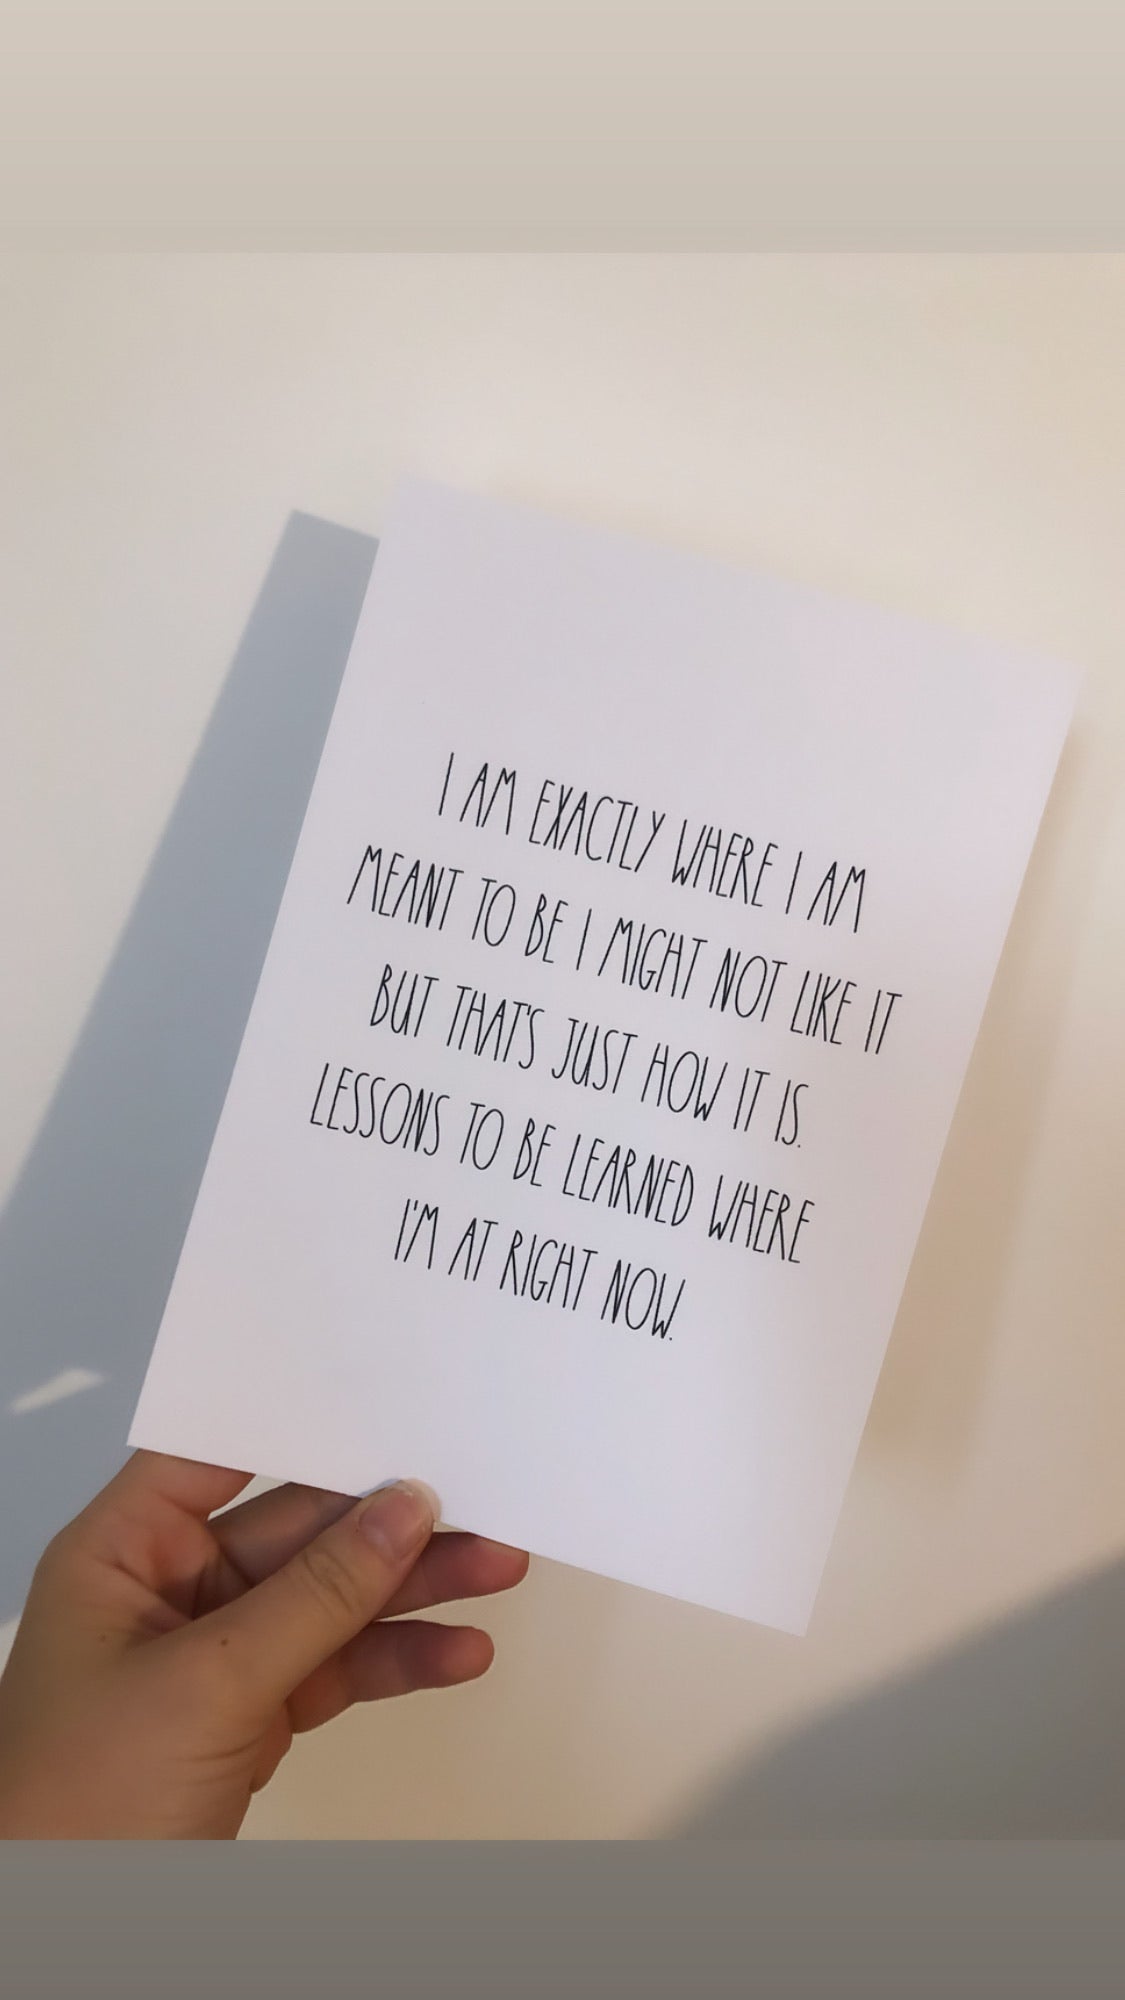 I AM EXACTLY WHERE I AM
MEANT TO BE I MIGHT NOT LIKE IT
BUT THAT'S JUST HOW IT IS.
LESSONS TO BE LEARNED WHERE
I'M AT RIGHT NOW.